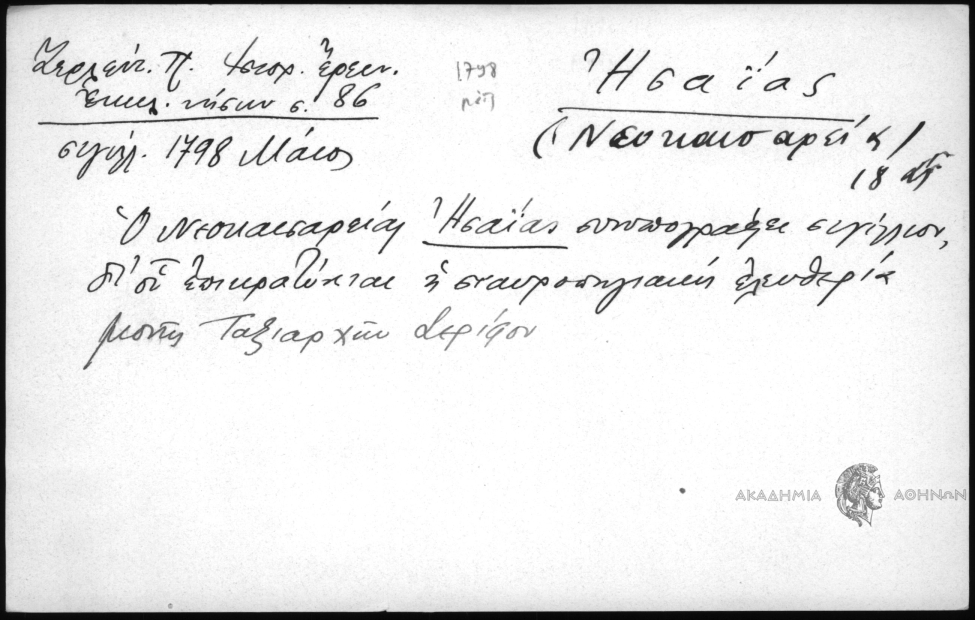 Ζερλέντ. Π. Ἱστορ. Ἔρευν.
Ἐκκλ. νήσων σ. 86
σιγίλλ. 1798 Μάιος
1798
μὲτ
Ἡσαΐας
(Νεοκαισαρείας)
18 αἰ
Ὁ Νεοκαισαρείας Ἡσαΐας συνυπογράφει σιγίλλιον,
δι' οὗ ἐπικρατύνεται ἡ σταυροπηγιακὴ ἐλευθερία
μονῆς Ταξιαρχῶν Σερίφου
ΑΚΑΔΗΜΙΑ ΑΘΗΝΩΝ